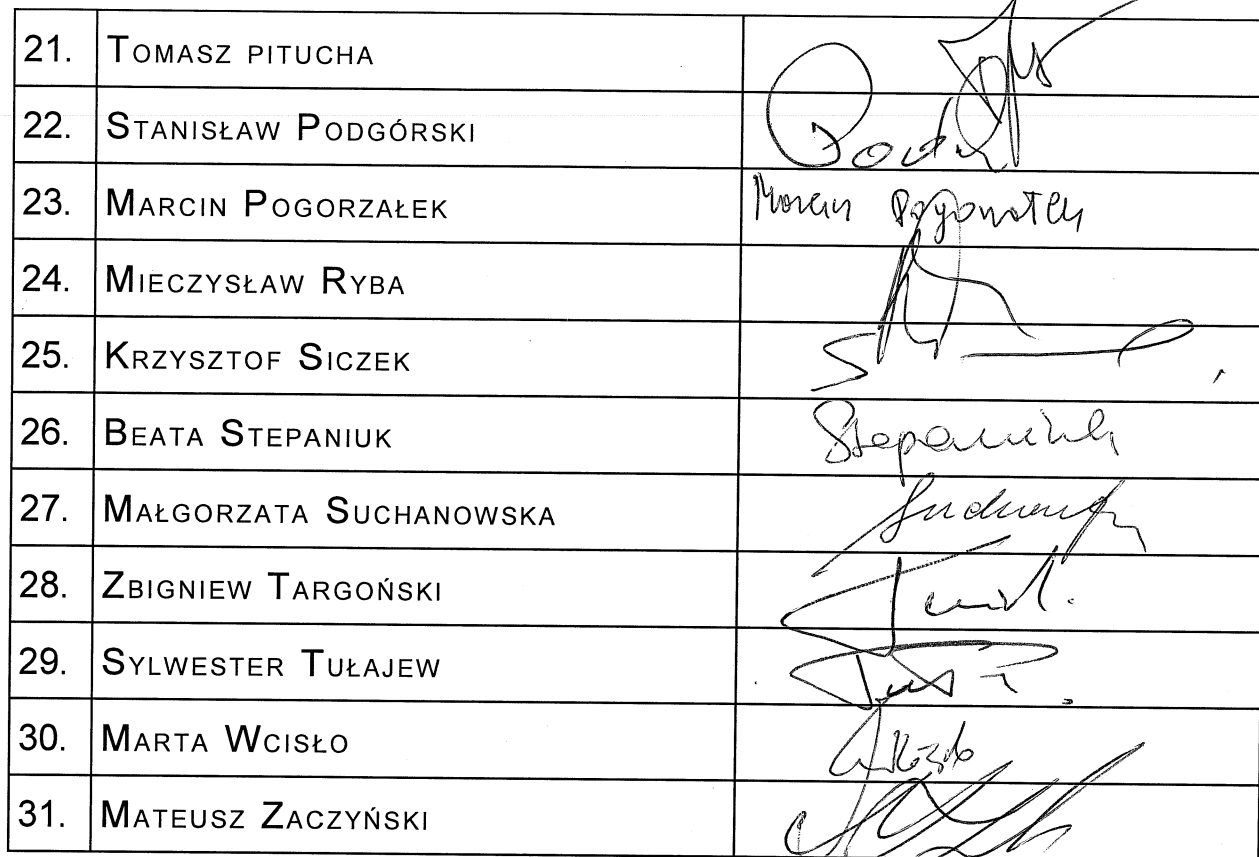 21. TOMASZ PITUCHA
22. STANISŁAW PODGÓRSKI
23. MARCIN POGORZAŁEK Marcin Pogorzałek
24. MIECZYSŁAW RYBA
25. KRZYSZTOF SICZEK
26. BEATA STEPANIUK Stepaniuk
27. MAŁGORZATA SUCHANOWSKA
28. ZBIGNIEW TARGOŃSKI
29. SYLWESTER TUŁAJEW
30. MARTA WCISŁO
31. MATEUSZ ZACZYŃSKI